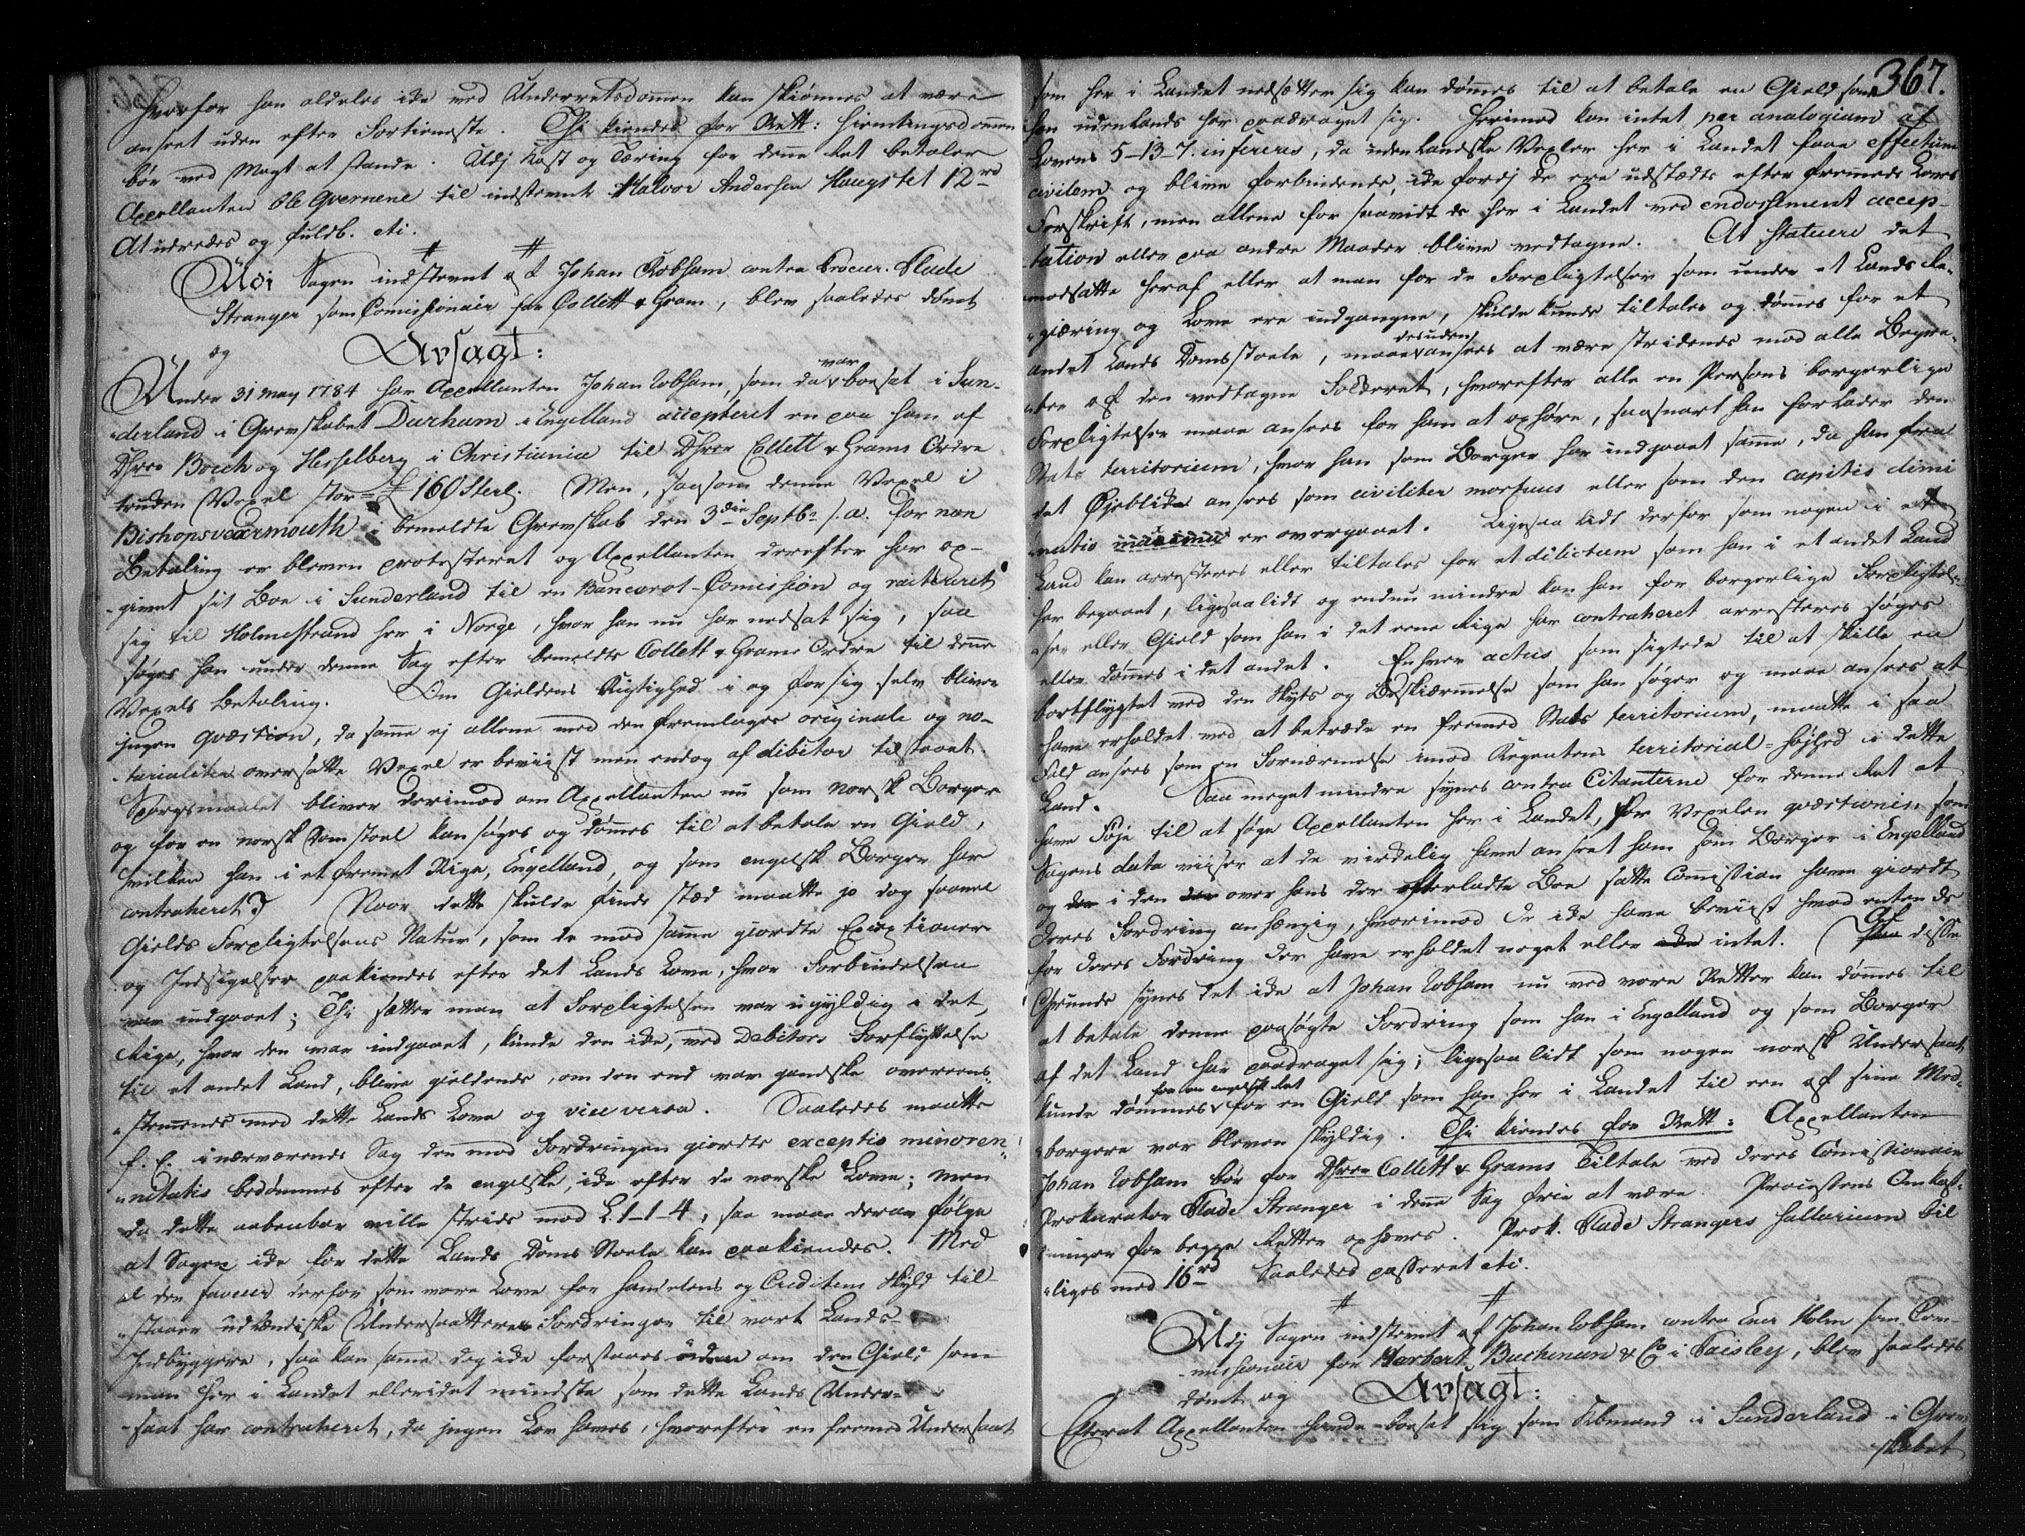 hvorfor han aldeles ikke ved Underretsdommen kan skiønnes at være
anseet uden efter Fortieneste. Thi kiendes for Rett: Hiemtingsdommen
bør ved Magt at stande. Udj Kost og Tæring for denne Ret betaler
Appellanten Ole Gvernene til indstevnte Halvor Andersen Haugstel 12rd
At udredes og fuldb. etc.
Udi Sagen indstevnt af Johan Robsham contra Procur. Flade
Stranger som Comissionair for Collett & Gram, blev saaledes dømt
og
Avsagt:
Under 31 May 1784 har Appellanten Johan Robsham, som da var boesat i Sun-
-derland i Grevskabet Durham i Engelland accepteret en paa ham af
DHrer Boeck og Hesselberg i Christiania til DHrer Collett & Grams Ordre
truden Vexel stor £ 160 Sterl. Men, saasom denne Vexel i
Bishopswearmouth i bemeldte Grevskab den 3die Septbr s.a. for non
Betaling er bleven protesteret og Appellanten derefter har op-
-givet sit Boe i Sunderland til en Bancarot-Comission og reitereret
sig til Holmestrand her i Norge, hvor han nu har nedsat sig, saa
søges han under denne Sag efter bemeldte Collett & Grams Ordre til denne
Vexels Betaling. Om Gieldens Rigtighed i og for sig selv bliver
ingen qvæstion, da samme ej allene med den fremlagte originale og no-
-tarialiter oversatte Vexel er beviist men endog af debitor tilstaaet.
Spørgsmaalet bliver derimod om Appellanten nu som norsk Borger
og for en norsk Domstoel kan søges og dømmes til at betale en Gield,
hvilken han i et fremmet Rige, Engelland, og som engelsk Borger har
contraheret? Naar dette skulde finde stæd maatte jo dog saavel
Gields Forpligtelsens Natur, som de mod samme giordte Exceptioner
og Indsigelser paakiendes efter det Lands Love, hvor Forbindelsen
var indgaaet; Thi sætter man at Forpligtelsen var ugyldig i det
Rige, hvor den var indgaaet, kunde den ikke, ved Debitors Forflyttelse
til et andet Land, blive gieldende, om den end var gandske overeens-
-stemmende med dette Lands Love og vice versa. Saaledes maatte
f. E. i nærværende Sag den mod Fordringen giordte exceptio minoren-
-nitatis bedømmes efter de engelske, ikke efter de norske Love; men
da dette aabenbar ville stride mod L. 1-1-4, saa maae deraf følge
at Sagen ikke for dette Lands Doms Stoele kan paakiendes. Med
al den faveur derfor som vore Love for Handelens og Creditens Skyld til-
-staaer udlændiske Undersaatteres Fordringer til vort Lands
Indbyggere, saa kan samme dog ikke forstaaes uden om den Gield som
man her i Landet eller i det mindste som dette Lands Under-
-saat har contraheret, da ingen Lov haves, hvorefter en fremmed Undersaat
367.
som her i Landet nedsætter sig kan dømmes til at betale en Gield som
han udenlands har paadraget sig. Herimod kan intet per analogiam af
Lovens 5-13-7. infereres, da udenlandske Vexler her i Landet faae effectum
civilem og blive forbindende, ikke fordj de ere udstædte efter fremmede Loves
Forskrift, men allene for saavidt de her i Landet ved endossement accep-
-tation eller paa andre Maader blive vedtagne. At statuere det
modsatte heraf eller at man for de Forpligtelser som under et Lands Re-
-giæring og Love ere indgangne, skulde kunde tiltales og dømmes for et
andet Lands Domstoele, maae desuden ansees at være stridende mod alle Begre-
-ber af den vedtagne Folkeret, hvorefter alle en Persons borgerlige
Forpligtelser maae ansees for ham at ophøre, saasnart han forlader den
Stats territorium, hvor han som Borger har indgaaet samme, da han fra
det Øjeblik ansees som civiliter mortuus eller som den capitis dimi
-nutio maxima er overgaaet. Ligesaa lidt derfor som nogen i et
Land kan arresteres eller tiltales for et delictum som han i et andet Land
har begaaet, ligesaalidt og endnu mindre kan han for borgerlige Forpligtel-
-ser eller Gield som han i det eene Rige har contraheret arresteres søges
eller dømmes i det andet. Enhver actus som sigtede til at skille en
bortflygtet ved den Skyts og Beskiærmelse som han søger og maae ansees at
have erholdet ved at betræde en fremmed Stats territorium, maatte i saa
Fald ansees som en Fornærmelse imod Regentens territorial-Højhed i dette
Land. Saa meget mindre synes contra Citanterne for denne Ret at
have Føje til at søge Appellanten her i Landet, for Vexelen qvæstionis, som
Sagens data viiser at de virkelig have anseet ham som Borger i Engelland
og i den over hans der efterladte Boe satte Comission have giordt
deres Fordring anhængig, hvorimod de ikke have beviist hvad enten de
for deres Fordring der have erholdet noget eller intet. Af disse
Grunde synes det ikke at Johan Robsham nu ved vore Retter kan dømmes til
at betale denne paasøgte Fordring som han i Engelland og som Borger
af det Land har paadraget sig; ligesaa lidt som nogen norsk Undersaat
kunde dømmes for en engelsk Ret for en Gield som han her i Landet til een af sine Med-
-borgere var bleven skyldig. Thi kiendes for Rett: Appellanten
Johan Robsham bør for DHrer Collett & Grams Tiltale ved deres Comissionair
Prokurator Flade Stranger i denne Sag frie at være. Processens Omkost-
-ninger for begge Retter ophæves. Prok. Flade Strangers Sallarium til
-liges med 16rd Saaledes passeret etc.
Udj Sagen indstevnt af Johan Robsham contra Ener Holm som Com-
-missionair for Herbert, Buchenan & Co i Paisley, blev saaledes
dømt og
Avsagt:
Efterat Appellanten havde boesat sig som Kiøbmand i Sunderland i Grev
skabet